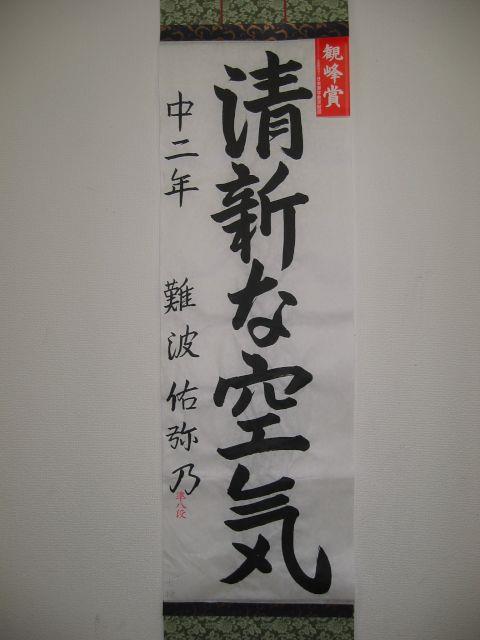 観峰賞
清新な空気
中二年 難波佑弥乃
準八段